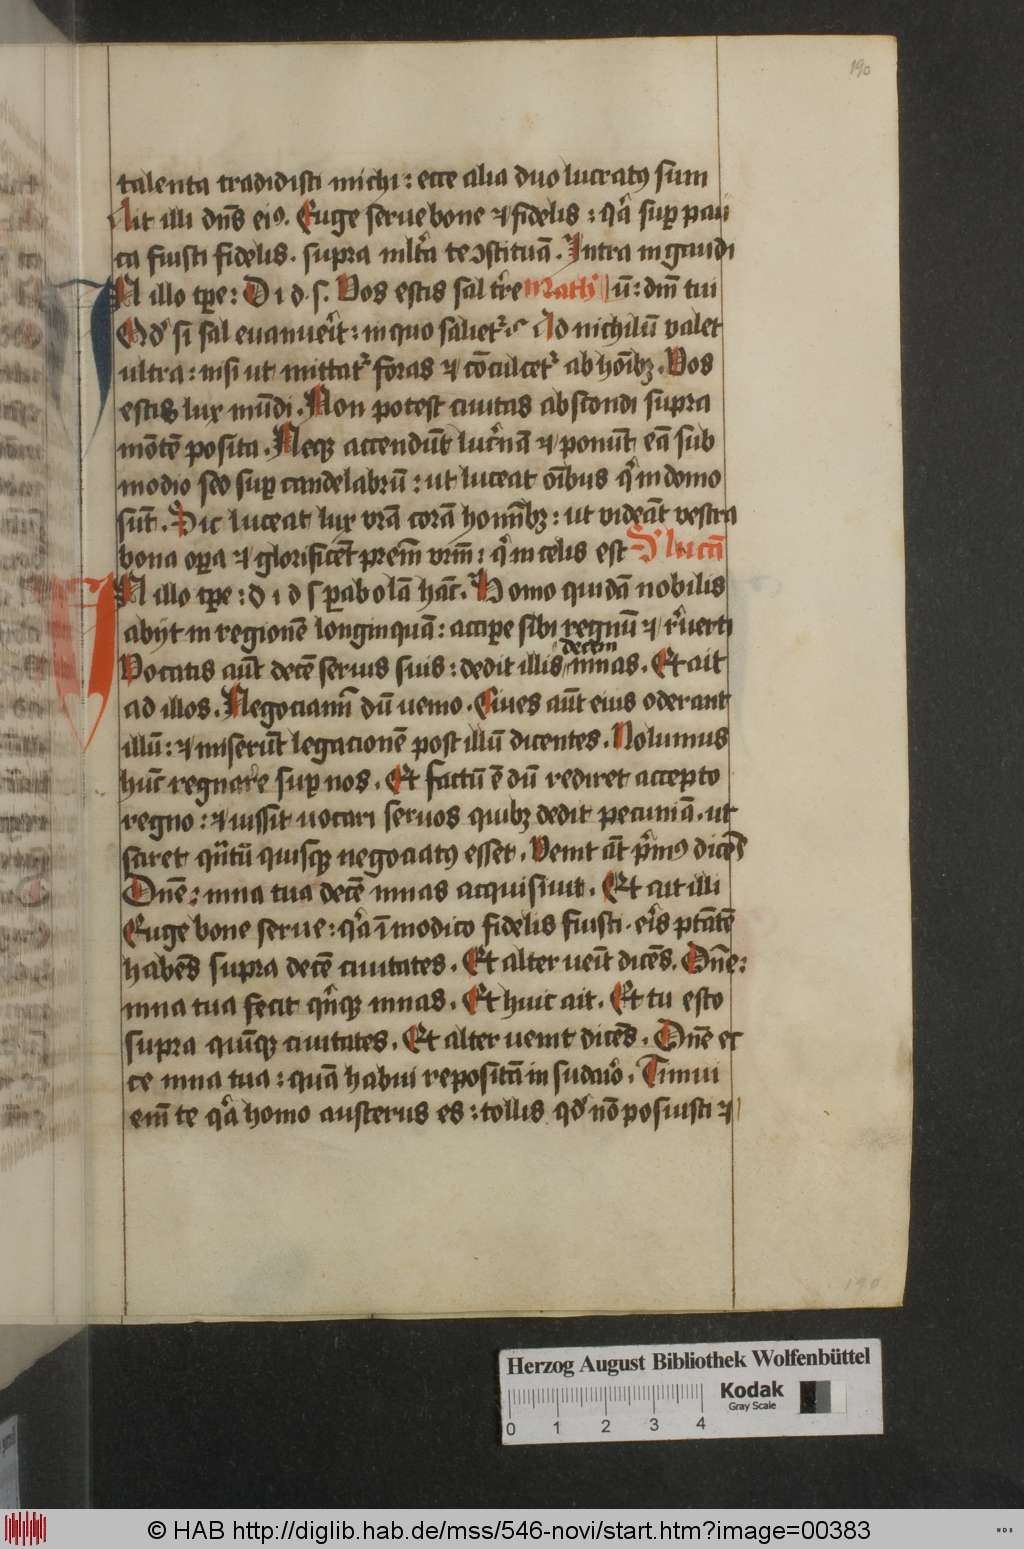 190
talenta tradidisti michi : ecce alia duo lucratꝰ sum
Ait illi dn̄s eiꝰ. Euge serue bone ⁊ fidelis : qͥa suꝑ pau
ca fuisti fidelis. supra ml̄ta te ꝯstituā. Intra in gaudi
In illo tp̄e : D i d s. Vos estis sal tr̄e Math' ū : dm̄ tui
Qd' si sal euanuerit : in quo salietᷣ Ad nichilū valet
ultra : nisi ut mittatᷣ foras ⁊ cōculcetᷣ ab hoībꝫ. Vos
estis lux mūdi. Non potest ciuitas abscondi supra
mōtē posita. Neqꝫ accendūt luc̄nā ⁊ ponūt eā sub
modio sed suꝑ candelabrū : ut luceat oībus qͥ in domo
sūt. Sic luceat lux vrā corā hominībꝫ : ut videāt vestra
bona oꝑa ⁊ glorificēt prem̄ vrm̄ : qͥ in celis est S' lucā
In illo tp̄e : d i d s parabolā hāc. Homo quidā nobilis
abijt in regionē longinquā : accipe sibi regnū ⁊ rͤuerti
decem
Vocatis aūt decē seruis suis : dedit illis mnas. Et ait
ad illos. Negociamī dū uenio. Ciues aūt eius oderant
illū : ⁊ miserūt legacionē post illū dicentes. Nolumus
hūc regnare suꝑ nos. Et factū ē dū rediret accepto
regno : ⁊ iussit uocari seruos quibꝫ dedit pecuniā. ut
sciret qn̄tū quisqꝫ negociatꝰ esset. Venit aūt pͥmꝰ dicēs
Dn̄e : mna tua decē mnas acquisiuit. Et ait illi
Euge bone serue : qͥa ī modico fidelis fuisti. eris ptātē
habēs supra decē ciuitates. Et alter ueīt dicēs. Dn̄e :
mna tua fecit qn̄qꝫ mnas. Et huic ait. Et tu esto
supra quīqꝫ ciuitates. Et alter uenit dicēs. Dn̄e ec
ce mna tua : quā habui repositā in sudaͥo. Timui
enī te qͥa homo austerus es : tollis qd' nō posuisti ⁊
190
Herzog August Bibliothek Wolfenbüttel
Kodak
Gray Scale
0 1 2 3 4
© HAB http://diglib.hab.de/mss/546-novi/start.htm?image=00383